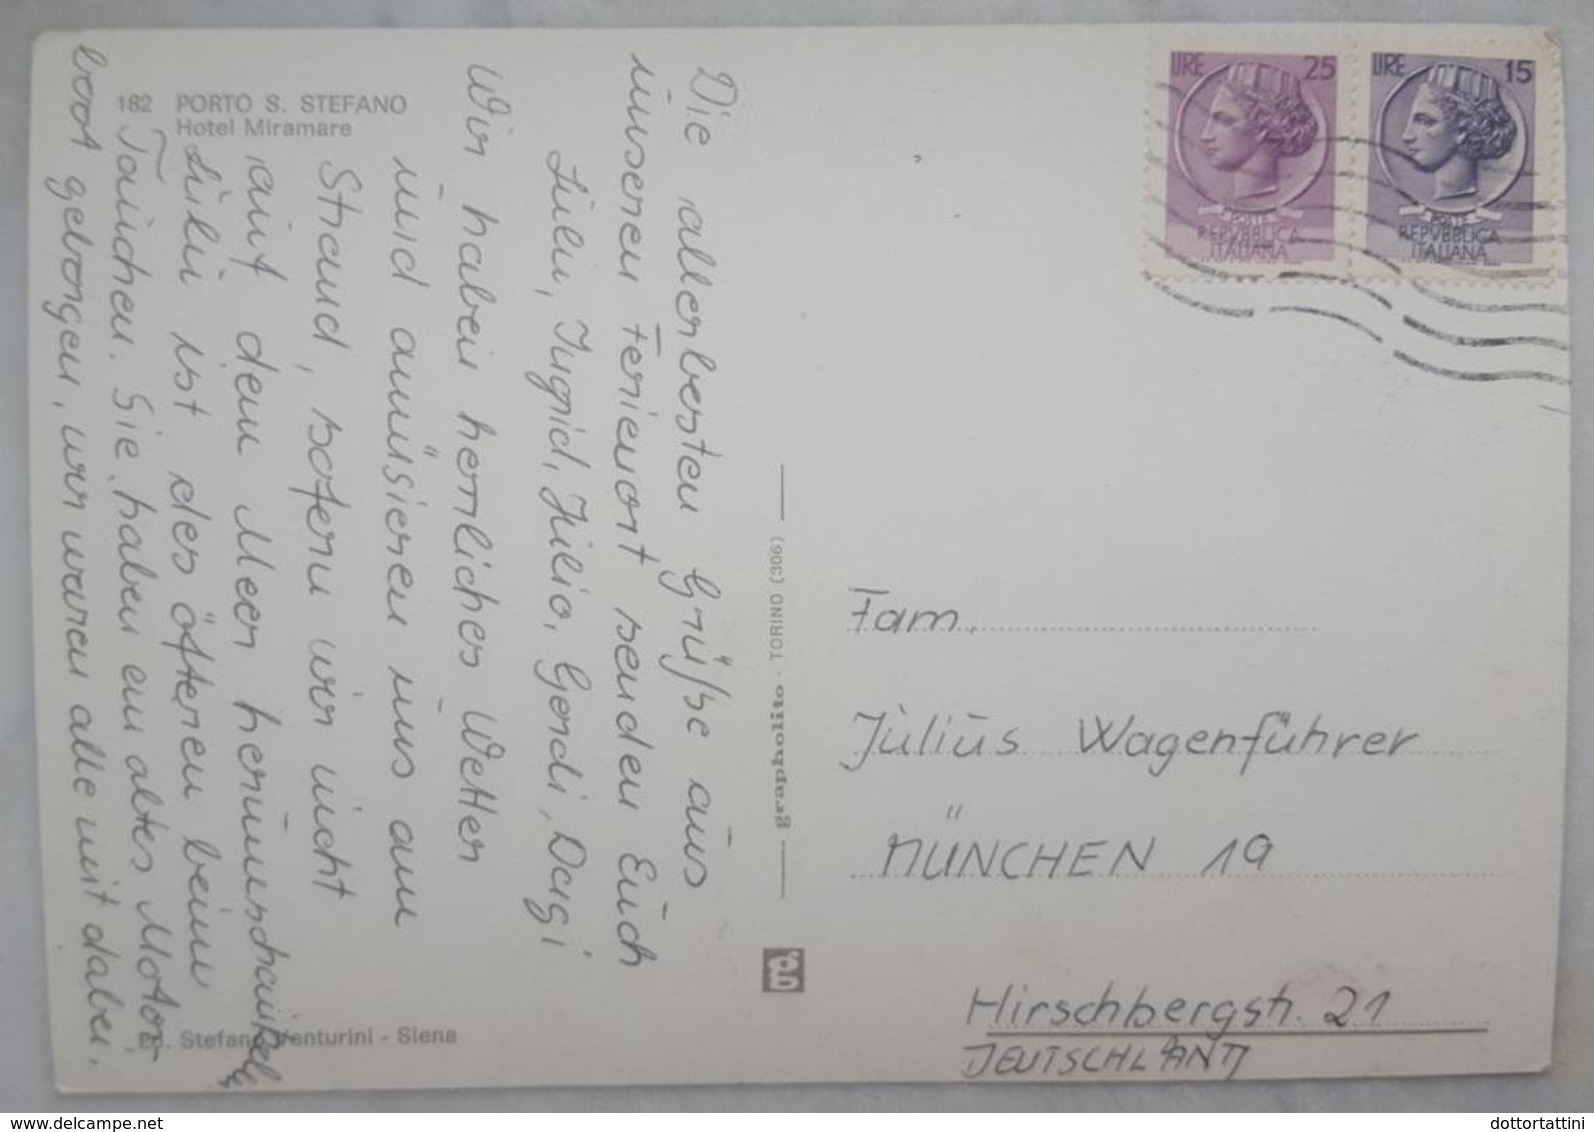 182 PORTO S. STEFANO
Hotel Miramare
Die allerbesten Grüße aus
unseren Ferienort senden Euch
Lulu, Ingrid, Julio, Gerdi, Dagi
Wir haben herrliches Wetter
und amüsieren uns am
Strand, sofern wir nicht
auf dem Meer herumschaukeln
Lulu ist des öfteren beim
Tauchen. Sie haben ein altes Motor
boot geborgen, wir waren alle mit dabei.
Ed. Stefano Venturini - Siena
grapholito - TORINO (306)
LIRE 25
POSTE
REPVBBLICA
ITALIANA
LIRE 15
POSTE
REPVBBLICA
ITALIANA
Fam.
Julius Wagenführer
MÜNCHEN 19
Hirschbergstr. 21
DEUTSCHLAND
delcampe.net
dottortattini